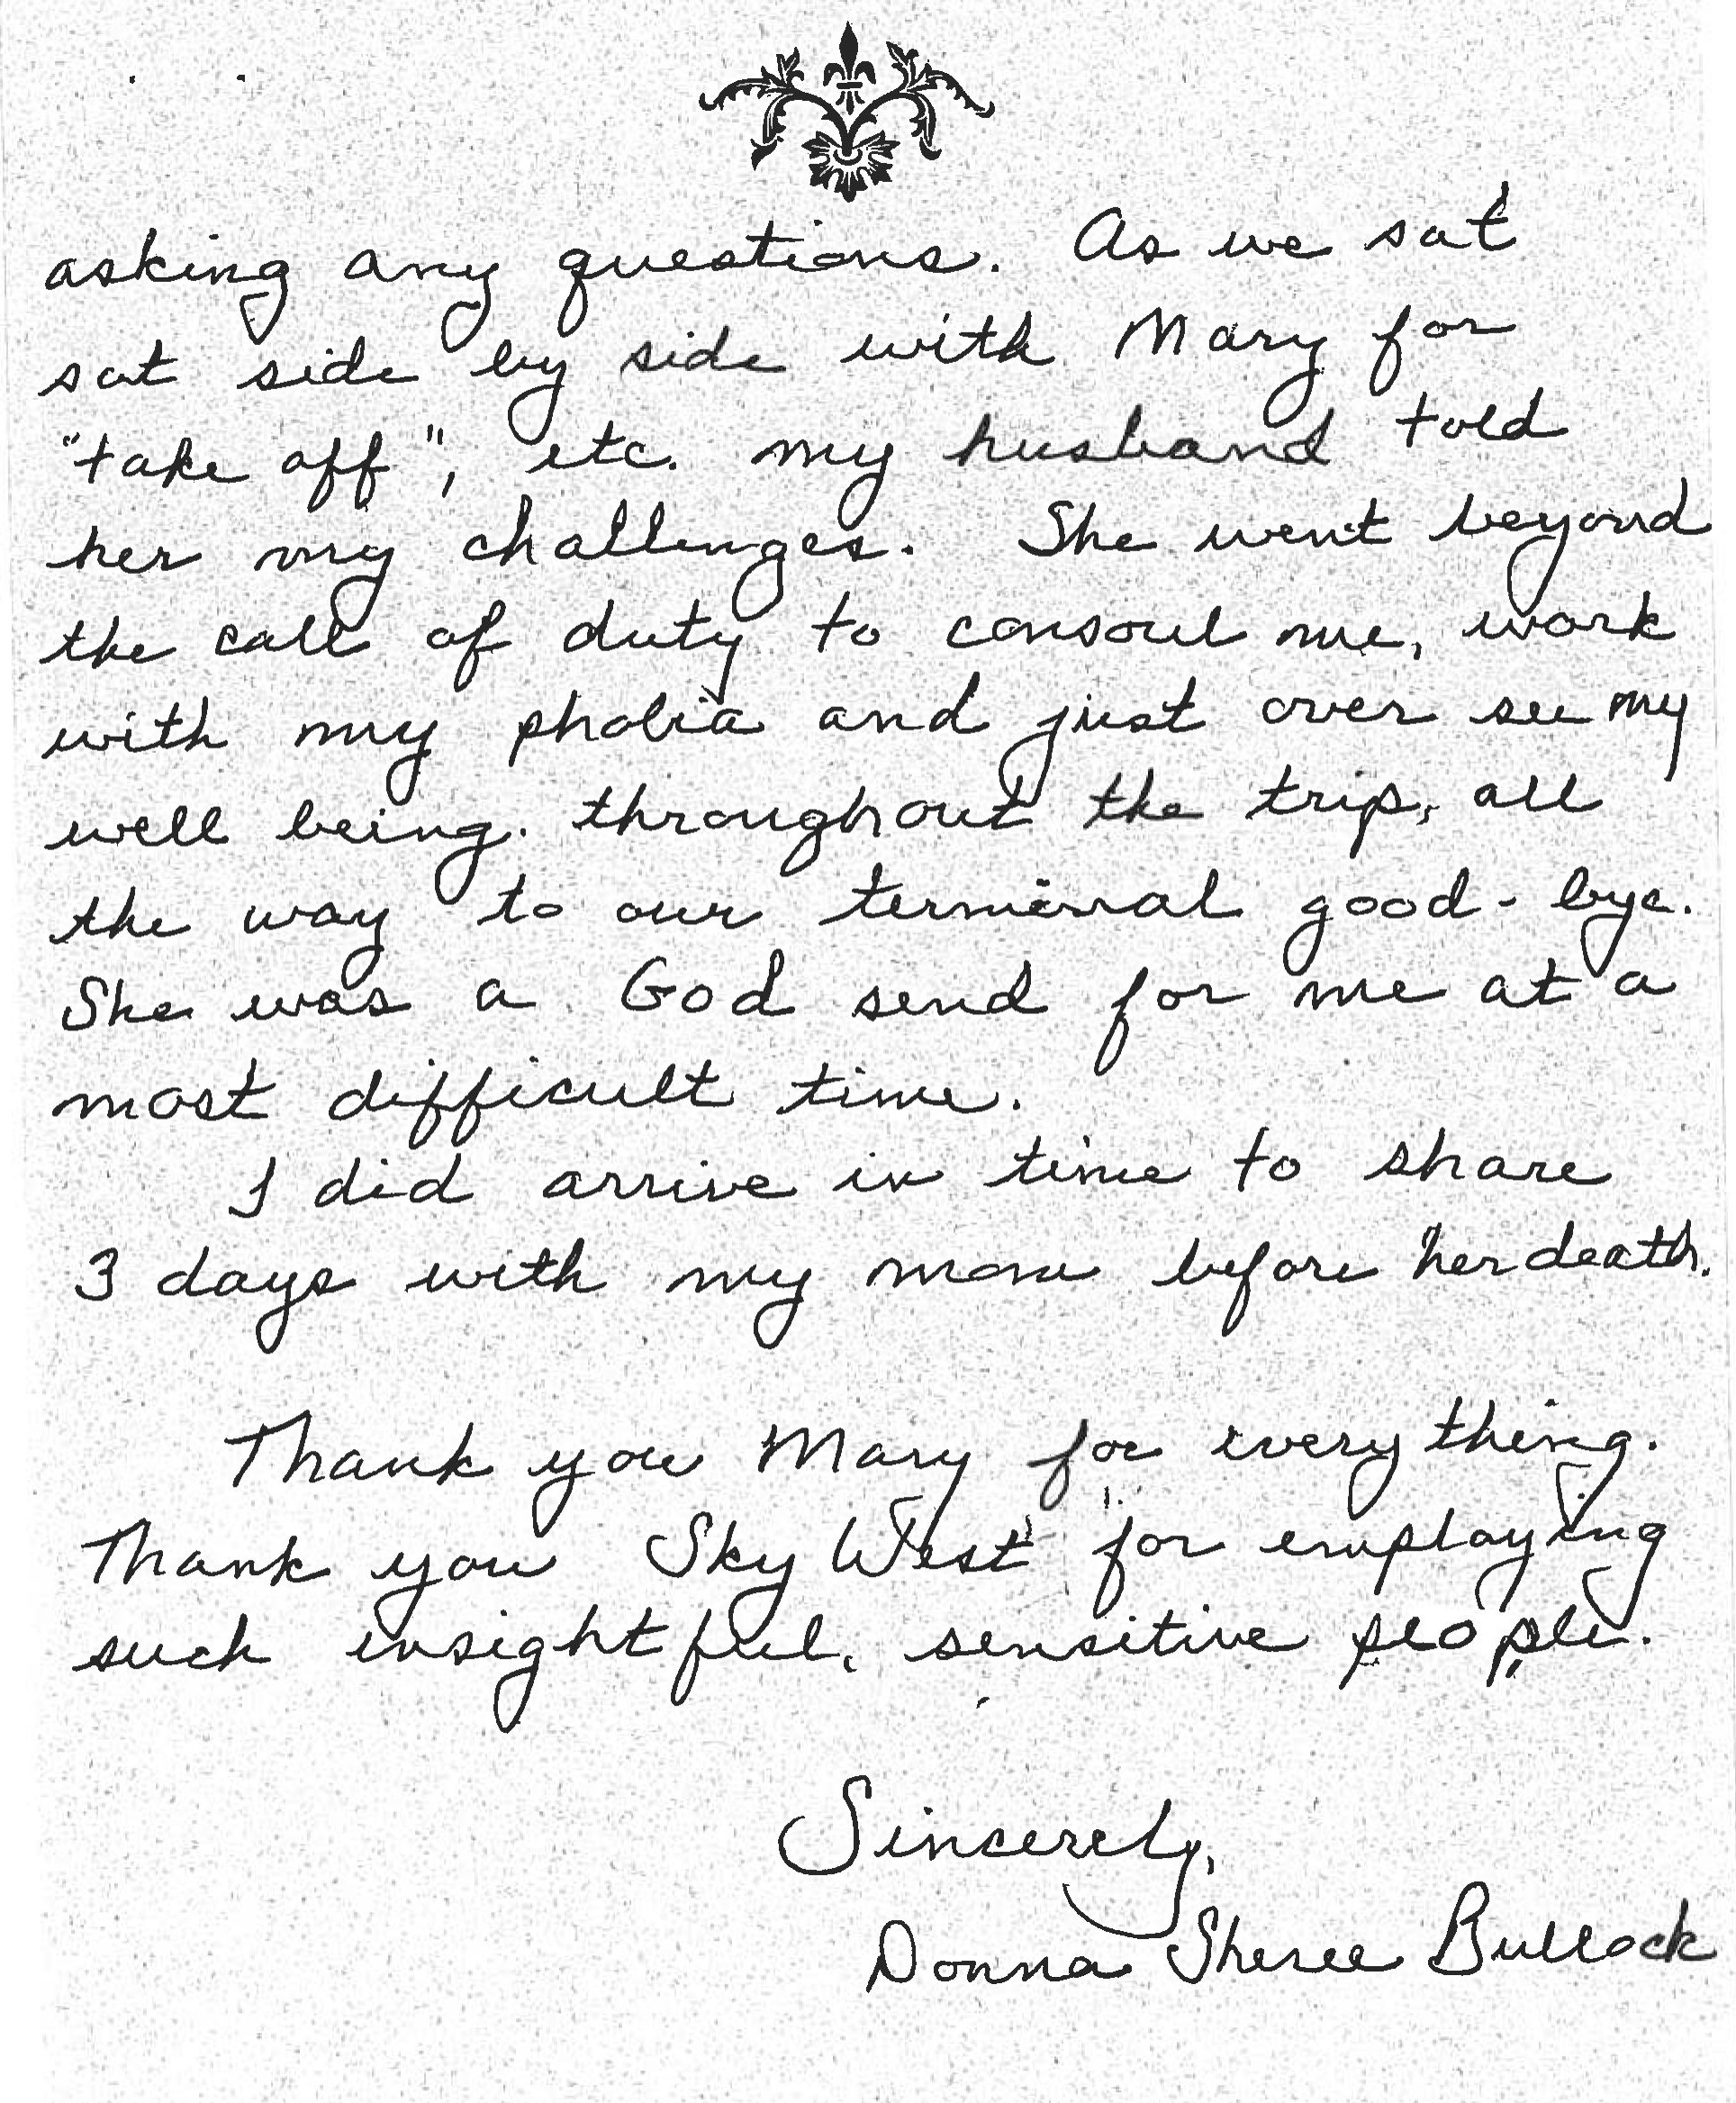 asking any questions. As we sat
sat side by side with Mary for
"take off", etc. my husband told
her my challenges. She went beyond
the call of duty to consoul me, work
with my phobia and just over see my
well being. throughout the trip, all
the way to our terminal good-bye.
She was a God send for me at a
most difficult time.
I did arrive in time to share
3 days with my mom before her death.
Thank you Mary for everything.
Thank you Sky West for employing
such insightful, sensitive people.
Sincerely,
Donna Sheree Bullock